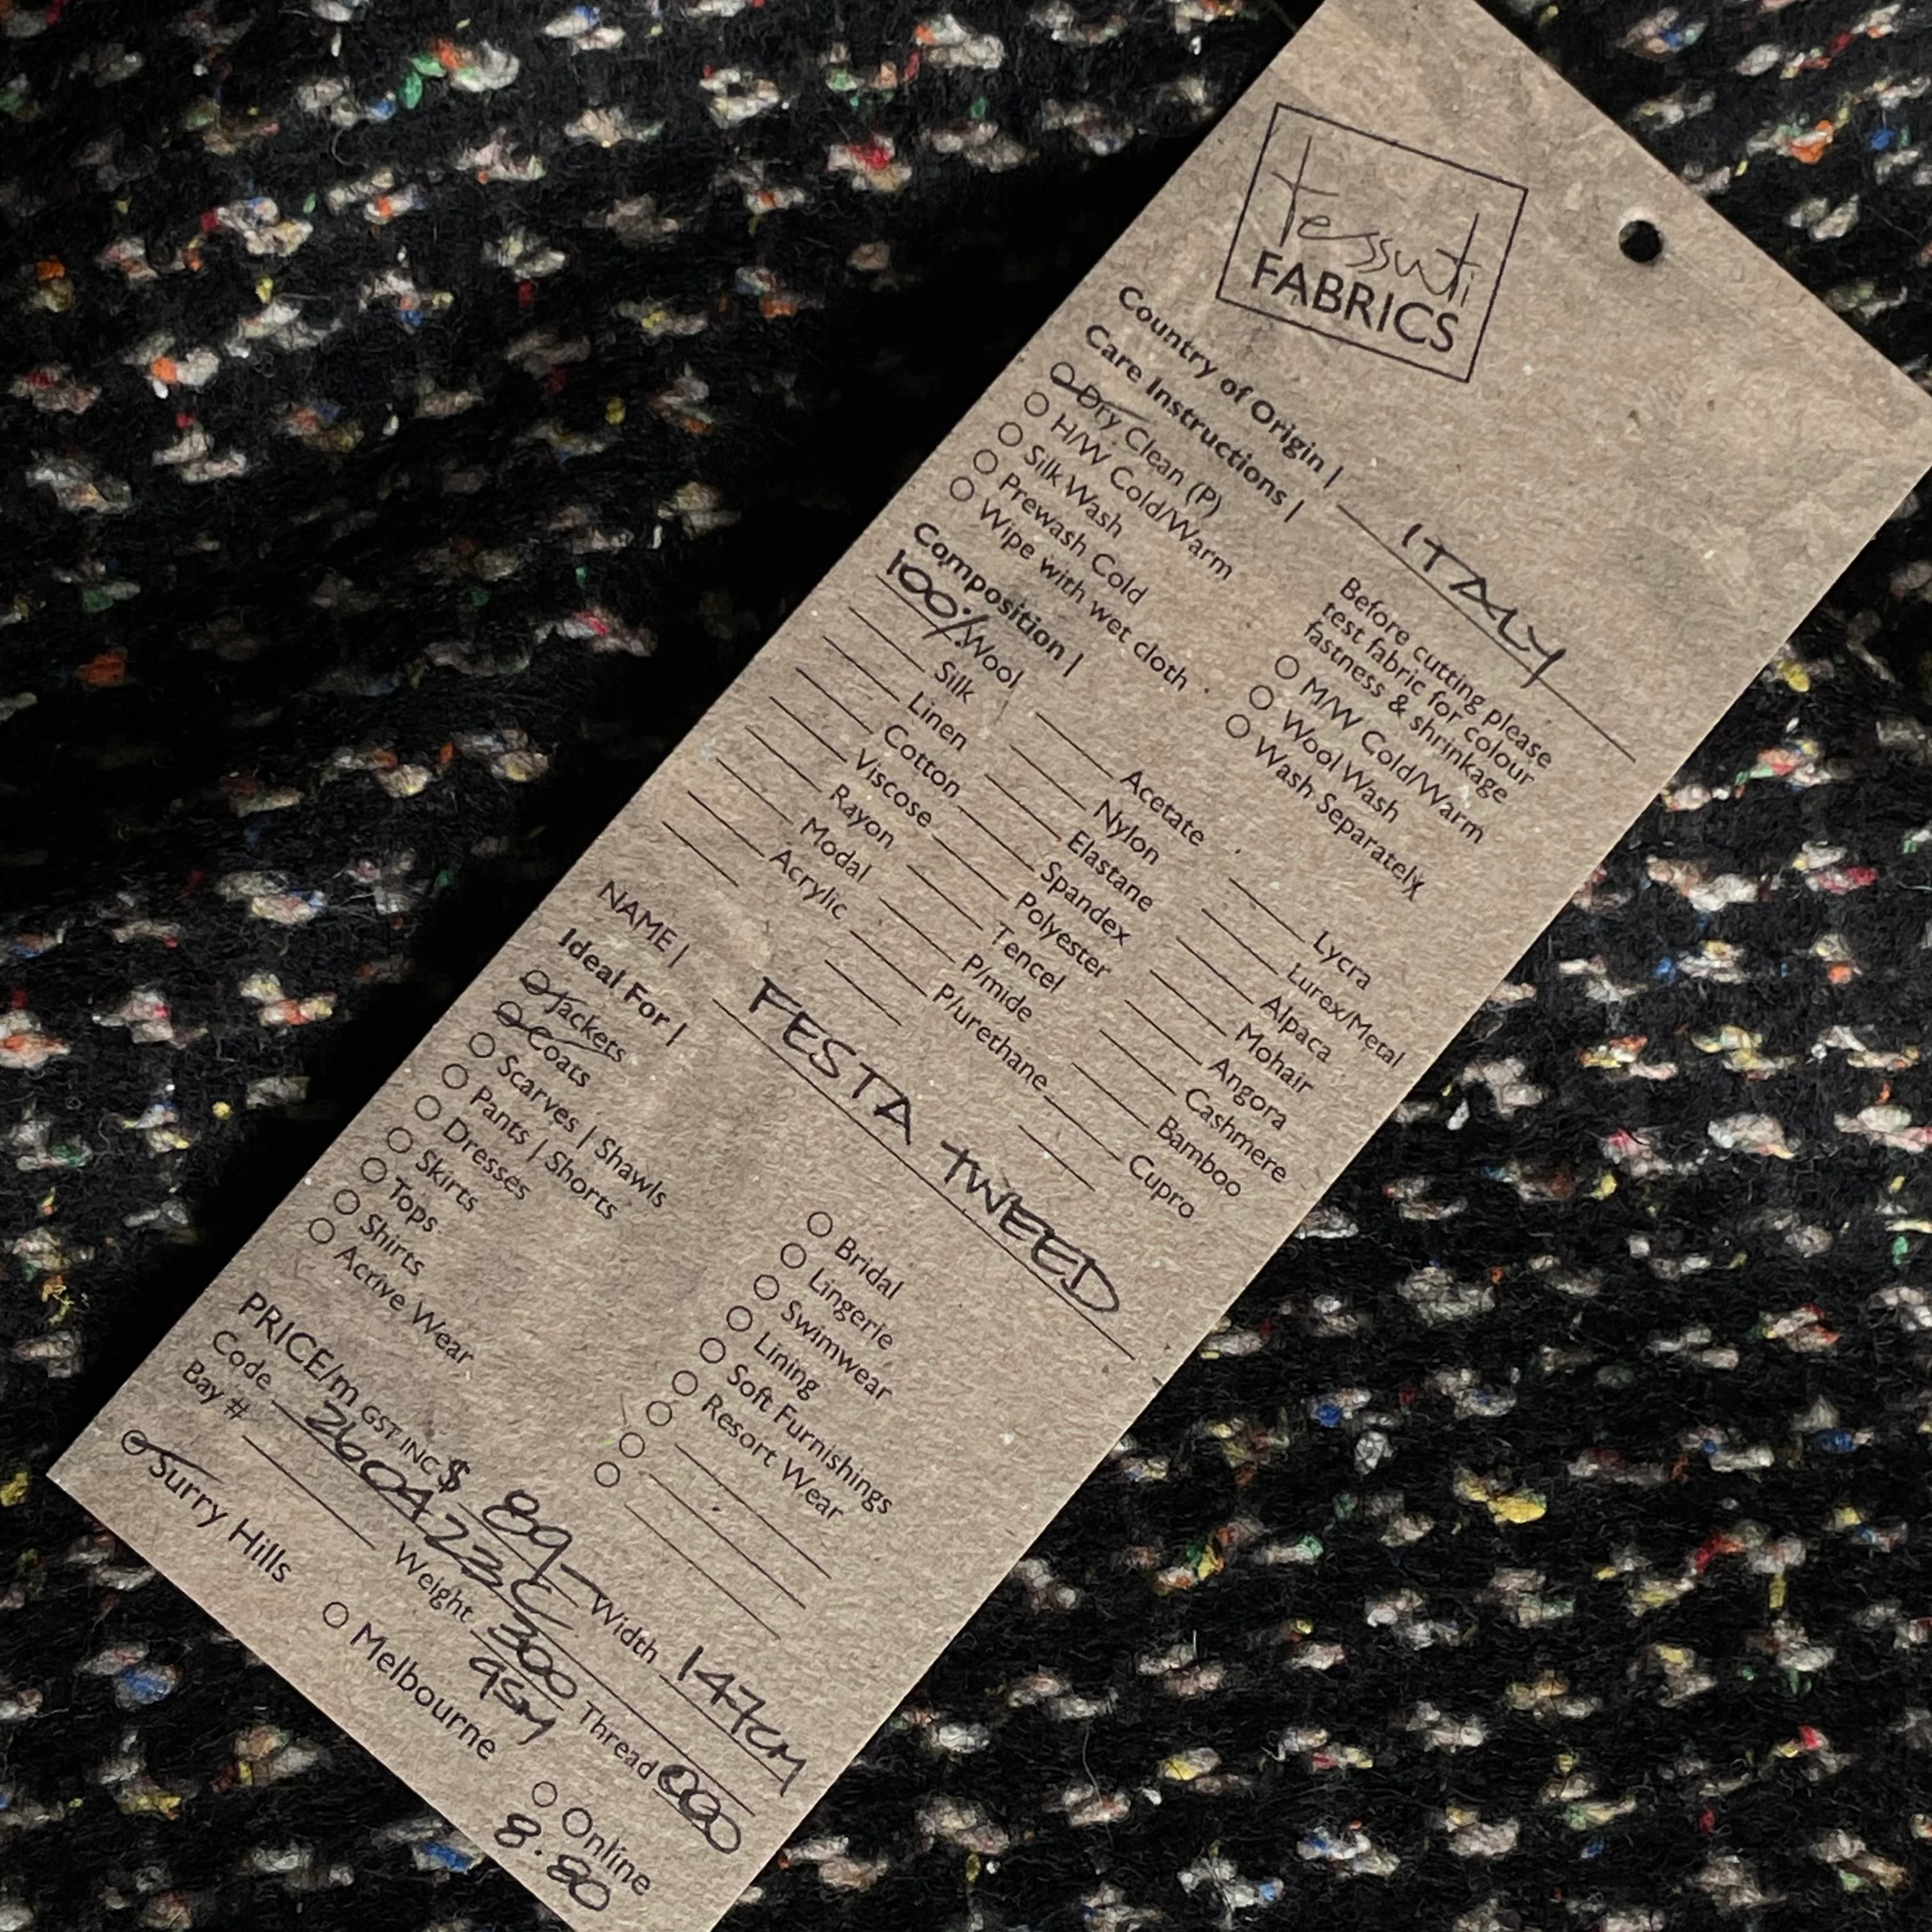 tessuti
FABRICS
Country of Origin | ITALY
Care Instructions |
Dry Clean (P)
H/W Cold/Warm
Silk Wash
Prewash Cold
Wipe with wet cloth
Before cutting please
test fabric for colour
fastness & shrinkage
M/W Cold/Warm
Wool Wash
Wash Separately
Composition |
100% Wool
Silk
Linen
Cotton
Viscose
Rayon
Modal
Acrylic
Acetate
Nylon
Elastane
Spandex
Polyester
Tencel
P/mide
P/urethane
Lycra
Lurex/Metal
Alpaca
Mohair
Angora
Cashmere
Bamboo
Cupro
NAME | FESTA TWEED
Ideal For |
Jackets
Coats
Scarves | Shawls
Pants | Shorts
Dresses
Skirts
Tops
Shirts
Acrive Wear
Bridal
Lingerie
Swimwear
Lining
Soft Furnishings
Resort Wear
PRICE/m GST INC $ 89- Width 147cm
Code 260423C
Bay # Weight 300 gsm Thread 000
Surry Hills Melbourne Online
8.80